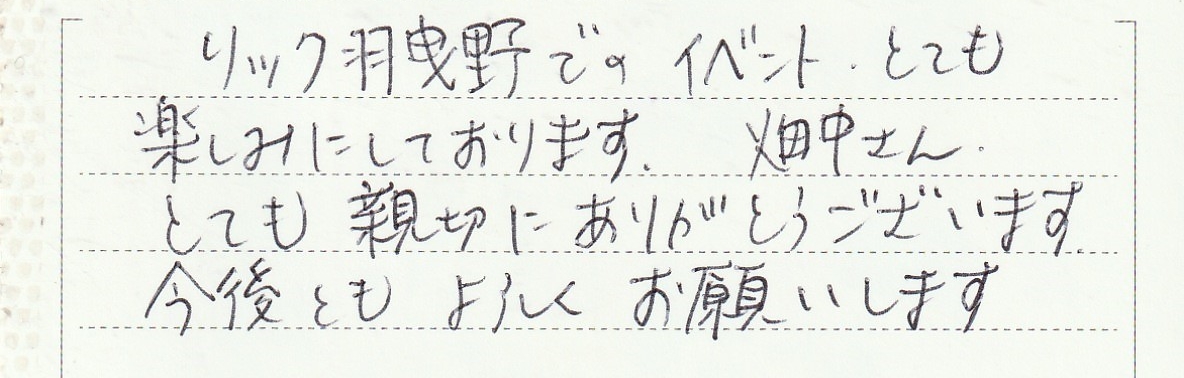 リック羽曳野でのイベント、とても
楽しみにしております。 畑中さん、
とても親切にありがとうございます。
今後ともよろしくお願いします